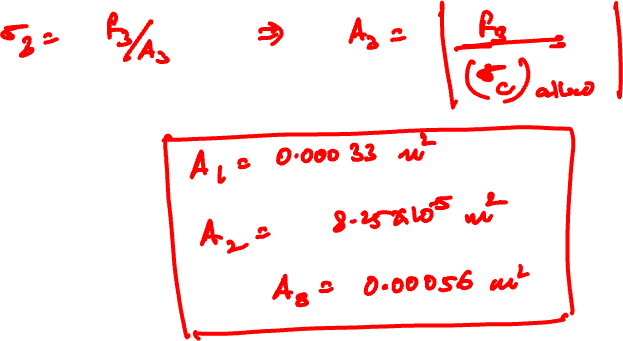 σ₃ = P₃/A₃ ⇒ A₃ = | P₃ / (σ_c)allow |
A₁ = 0.00033 m²
A₂ = 8.25×10⁻⁵ m²
A₃ = 0.00056 m²